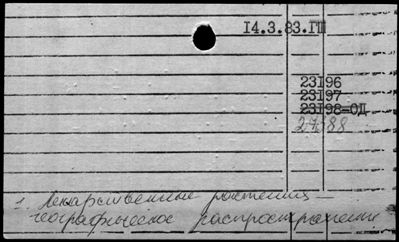 14.3.83.ГП
23196
23197
23198-ОД
27388
1. Лекарственные растения —
географическое распространение